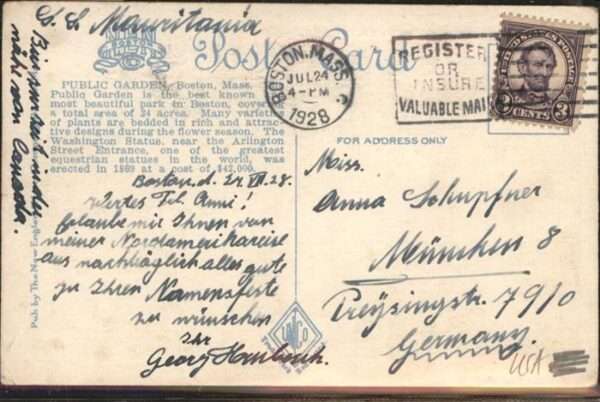 S.S. Mauritania
Post Card
BOSTON
PUBLIC GARDEN, Boston, Mass.
Public Garden is the best known
most beautiful park in Boston, cover
a total area of 24 acres. Many variet
of plants are bedded in rich and attrac
tive designs during the flower season. The
Washington Statue, near the Arlington
Street Entrance, one of the greatest
equestrian statues in the world, was
erected in 1869 at a cost of $42,000.
Boston, d. 24. VII. 28.
Wertes Frl. Anni!
Erlaube mir Ihnen von
meiner Nordamerikareise
aus nachträglich alles gute
zu Ihren Namensfeste
zu wünschen
Ihr
Georg
Bin
nähe von Canada.
Pub by The New Engla
BOSTON, MASS.
JUL 24
4-PM
1928
REGISTER
OR
INSURE
VALUABLE MAIL
3 CENTS 3
FOR ADDRESS ONLY
Miss.
Anna Schupfner
München 8
Preysingstr. 79/0
Germany.
USA